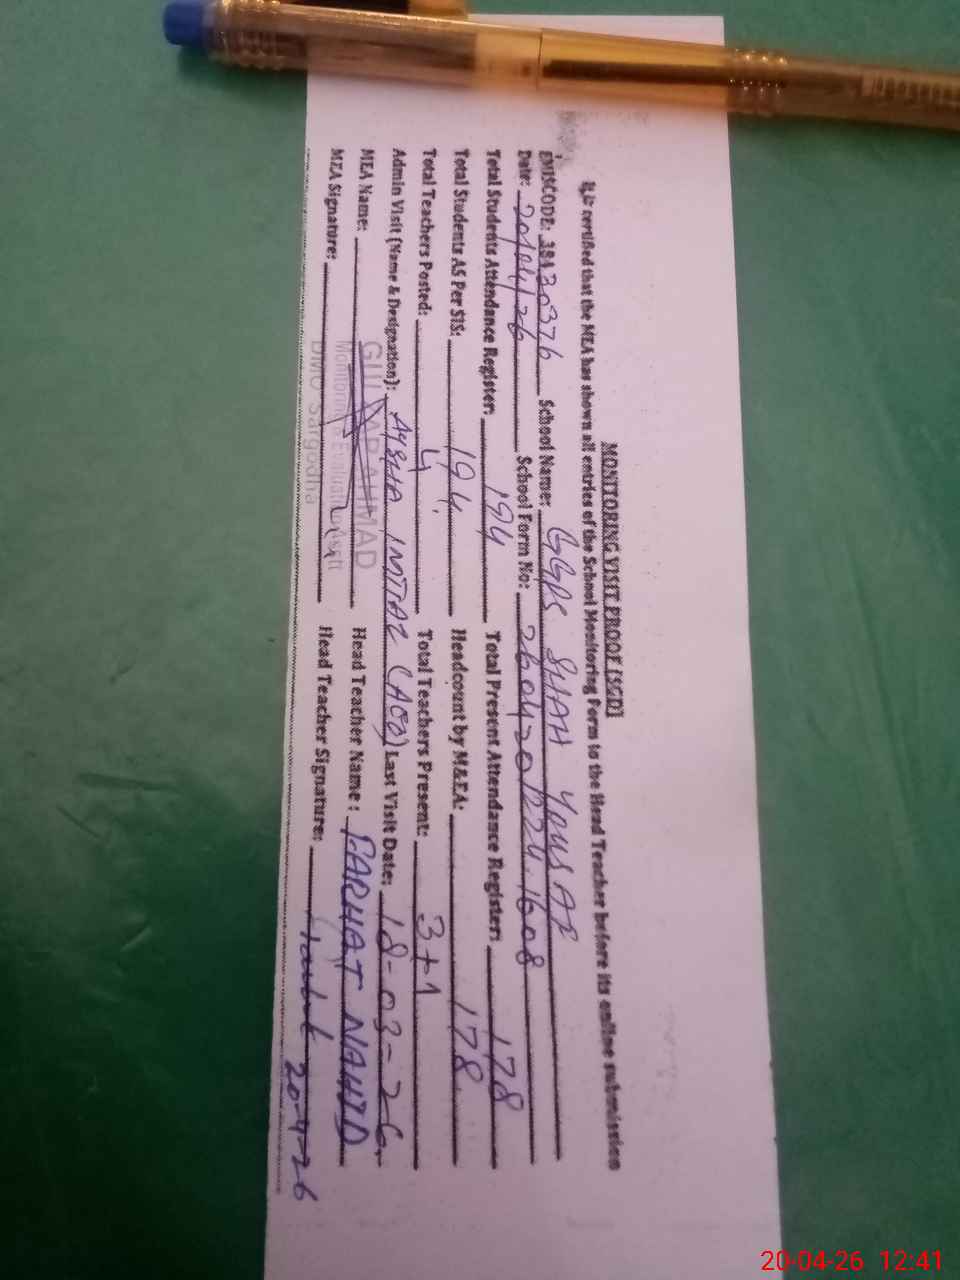 MONITORING VISIT PROOF [SGD]
It is certified that the MEA has shown all entries of the School Monitoring Form to the Head Teacher before its online submission
EMISCODE: 38430376 School Name: GGPS SHAH YOUSAF
Date: 20/04/26 School Form No: 26042012241608
Total Students Attendance Register: 194 Total Present Attendance Register: 178
Total Students AS Per SIS: 194 Headcount by M&EA: 178
Total Teachers Posted: 4 Total Teachers Present: 3+1
Admin Visit (Name & Designation): AYSHA IMTIAZ (AEO) Last Visit Date: 18-03-26
MEA Name: Head Teacher Name: FARHAT NAHID
MEA Signature: Head Teacher Signature: 20-4-26
AHMAD
Monitoring & Evaluation Asstt
DMO Sargodha
20-04-26 12:41